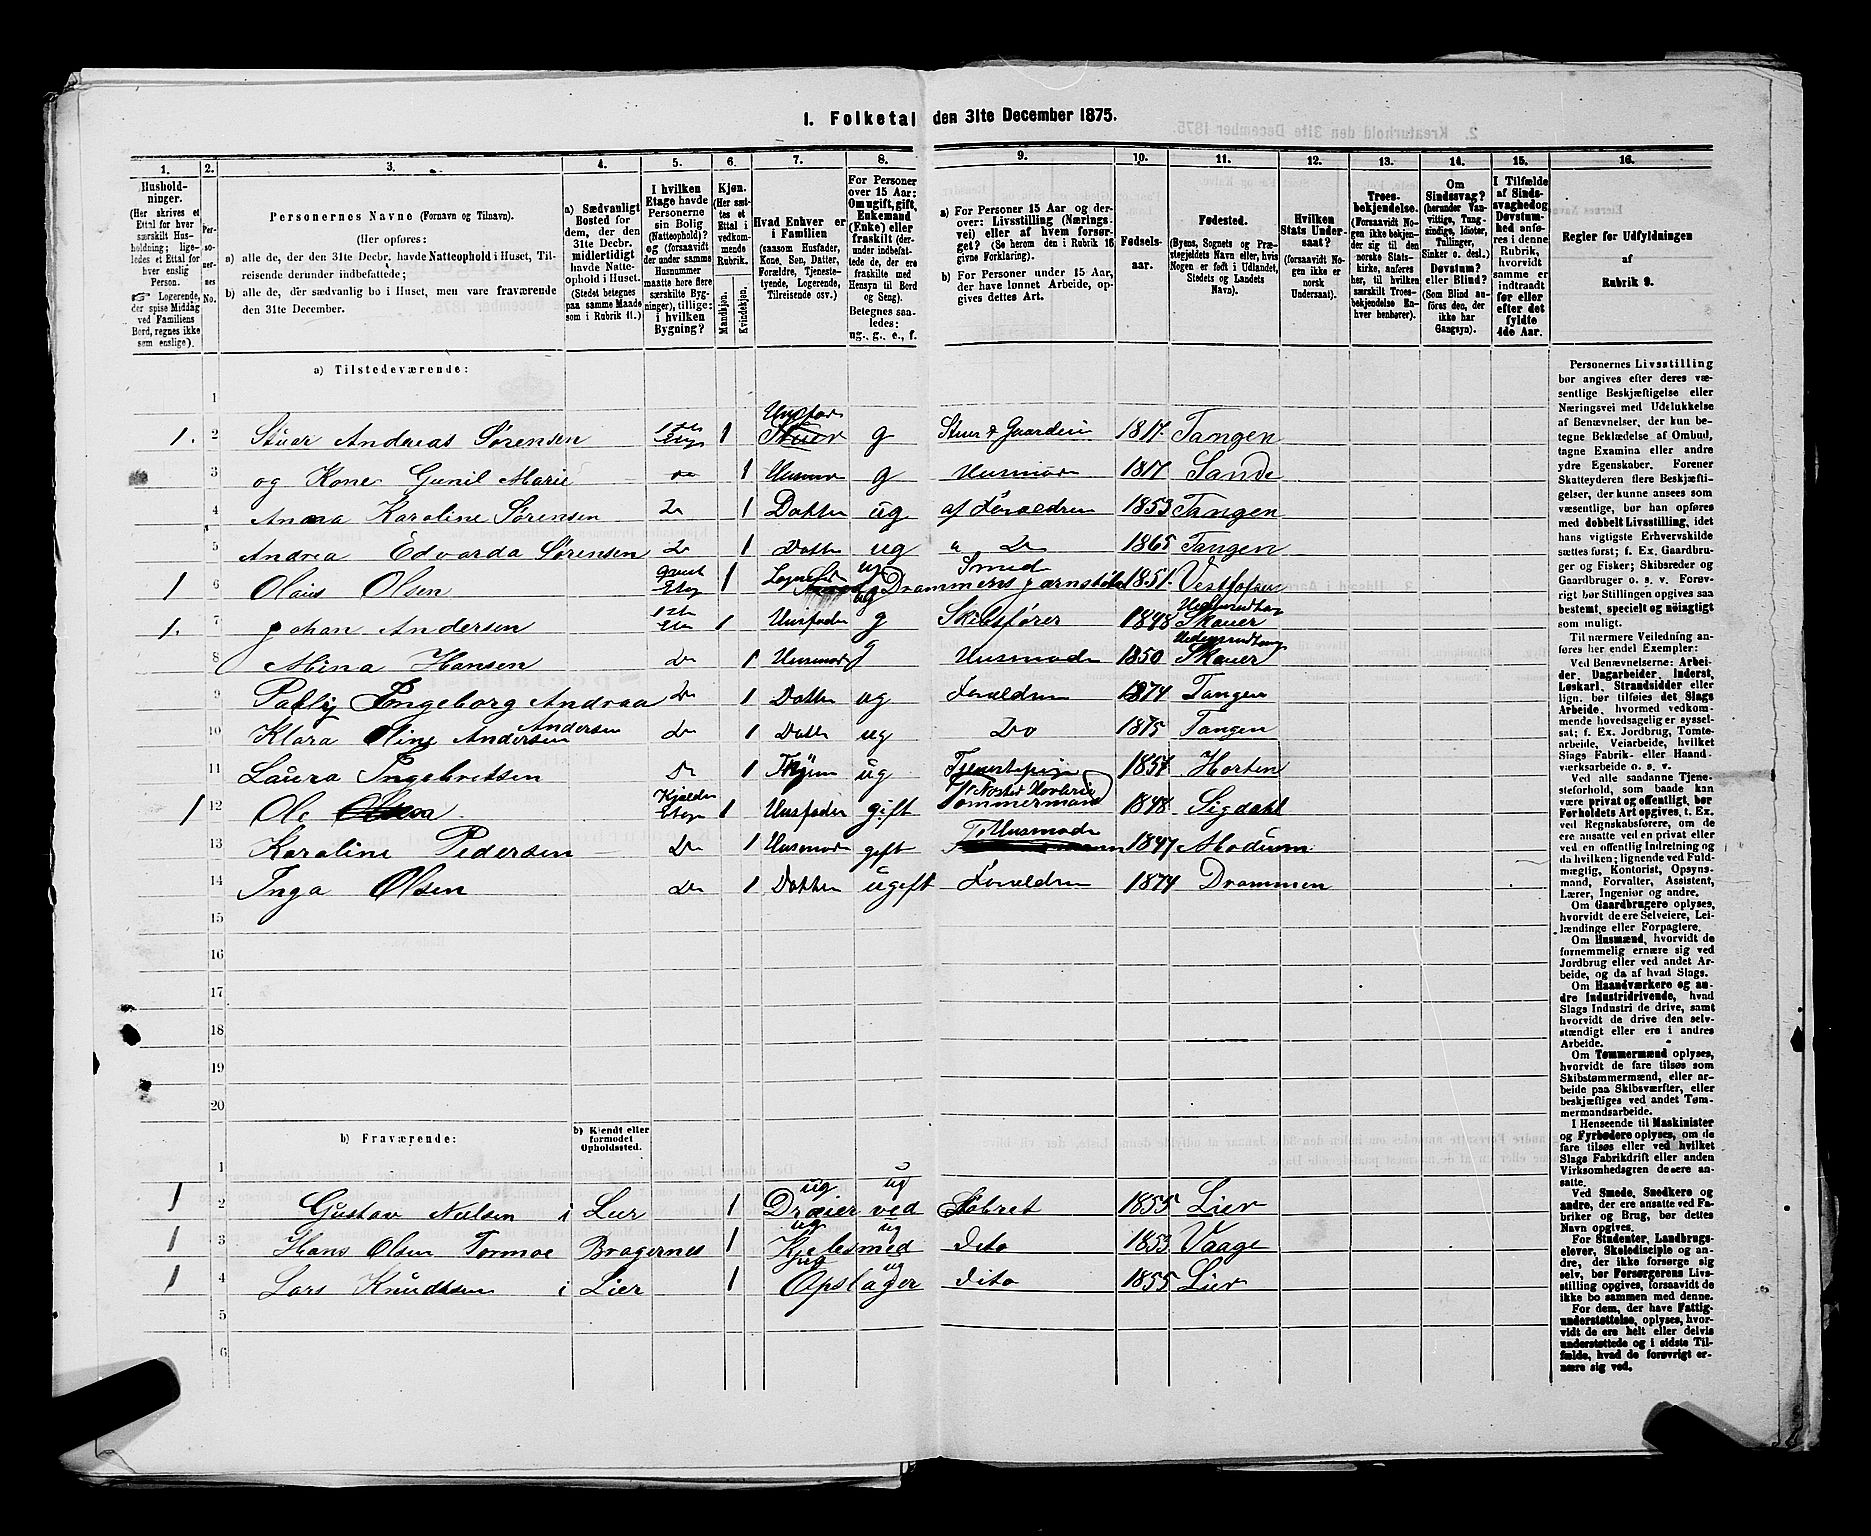 1. Folketal den 31te December 1875.
1. Husholdninger. (Her skrives et Ettal for hver særskilt Husholdning; ligeledes et Ettal for hver enslig Person. ☞ Logerende, der spise Middag ved Familiens Bord, regnes ikke som enslige).
2. Personernes No.
3. Personernes Navne (Fornavn og Tilnavn). (Her opføres: a) alle de, der den 31te Decbr. havde Natteophold i Huset, Tilreisende derunder indbefattede; b) alle de, der sædvanlig bo i Huset, men vare fraværende den 31te December.
4. a) Sædvanligt Bosted for dem, der den 31te Decbr. midlertidigt havde Natteophold i Huset. (Stedet betegnes paa samme Maade som i Rubrik 11.)
5. I hvilken Etage havde Personerne sin Bolig (Natteophold)? og (forsaavidt der under samme Husnummer maatte høre flere særskilte Bygninger), tillige: i hvilken Bygning?
6. Kjøn. (Her sættes et Ettal i vedkommende Rubrik. Mandskjøn. Kvindekjøn.
7. Hvad Enhver er i Familien (saasom Husfader, Kone, Søn, Datter, Forældre, Tjenestetyende, Logerende, Tilreisende osv.)
8. For Personer over 15 Aar: Om ugift, gift, Enkemand (Enke) eller fraskilt (derunder indbefattede de, der ere fraskilte med Hensyn til Bord og Seng). Betegnes saaledes: ug., g., e., f.
9. a) For Personer 15 Aar og derover: Livsstilling (Næringsvei) eller af hvem forsørget? (Se herom den i Rubrik 16 givne Forklaring). b) For Personer under 15 Aar, der have lønnet Arbeide, opgives dettes Art.
10. Fødselsaar.
11. Fødested. (Byens, Sognets og Præstegjeldets Navn eller, hvis Nogen er født i Udlandet, Stedets og Landets Navn).
12. Hvilken Stats Undersaat? (forsaavidt Nogen ikke er norsk Undersaat).
13. Troesbekjendelse. (Forsaavidt Nogen ikke bekjender sig til den norske Statskirke, anføres her, til hvilken særskilt Troesbekjendelse Enhver benhører).
14. Om Sindssvag? (herunder Vanvittige, Tungsindige, Idioter, Tullinger, Sinker o. desl.). Døvstum? eller Blind? (Som Blind anføres den, der ikke har Gangsyn).
15. I Tilfælde af Sindssvaghed og Døvstumhed anføres i denne Rubrik, hvorvidt samme er indtraadt før eller efter det fyldte 4de Aar.
16. Regler for Udfyldningen af Rubrik 9.
a) Tilstedeværende:
1
1. 2 Stuer Andreas Sørensen 1ste Etage 1 g Stuer & Gaardeier 1817 Tangen
3 og Kone Gunil Marie do 1 Husmor g Husmoder 1817 Sande
4 Anna Karoline Sørensen Do 1 Datter ug af Forældren 1853 Tangen
5 Andrea Edvarda Sørensen Do 1 Datter ug " Do 1865 Tangen
1 6 Olaus Olsen Etage 1 ug Smed Drammens 1851 Vestfossen
1. 7 Johan Andersen 1ste Eta 1 Husfader g Skibsfører 1848 Skauer
8 Mina Hansen Do 1 Husmoder g Husmoder 1850 Skauer
9 Ingeborg Andrea Do 1 Datter ug Forældren 1874 Tangen
10 Klara Oline Andersen Andersen Do 1 Datter ug Do 1875 Tangen
11 Laura Ingebretsen Do 1 ug Tjenestepige 1857 Horten
1 12 Ole Kjælder Etage 1 Husfader gift Tømmermand 1848 Sigdahl
13 Karoline Pedersen Do 1 Husmoder gift Husmoder 1847 Modum
14 Inga Olsen Do 1 Datter ugift Forældren 1874 Drammen
15
16
17
18
19
20
b) Fraværende: b) Kjendt eller formodet Opholdssted.
1
1 2 Gustav Nielsen i Lier 1 ug Dreier ved ug Fabret 1855 Lier
1 3 Hans Olsen Tormoe Bragernes 1 ug Kjelesmed ug dito 1853 Vaage
1 4 Lars Knudtsen i Lier 1 ug Opslager ug dito 1855 Lier
5
6
Personernes Livsstilling
bør angives efter deres væ-
sentlige Beskjæftigelse eller
Næringsvei med Udelukkelse
af Benævnelser, der kun be-
tegne Beklædelse af Ombud,
tagne Examina eller andre
ydre Egenskaber. Forener
Skatteyderen flere Beskjæfti-
gelser, der kunne ansees som
væsentlige, bør han opføres
med dobbelt Livsstilling, idet
hans vigtigste Erhvervskilde
sættes først; f. Ex. Gaardbru-
ger og Fisker; Skibsreder og
Gaardbruger o. s. v. Forøv-
rigt bør Stillingen opgives saa
bestemt, specielt og nöiagtigt
som muligt.
Til nærmere Veiledning an-
føres her endel Exempler:
Ved Benævnelserne: Arbei-
der, Dagarbeider, Inderst,
Løskarl, Strandsidder eller
lign. bør tilføies det Slags
Arbeide, hvormed vedkom-
mende hovedsagelig er syssel-
sat; f. Ex. Jordbrug, Tomte-
arbeide, Veiarbeide, hvilket
Slags Fabrik- eller Haand-
værksarbeide o. s. v.
Ved alle saadanne Tjene-
steforhold, som baade kan
være privat og offentligt, bør
Forholdets Art opgives, t. Ex.
ved Regnskabsførere, om de
ere ansatte ved en privat eller
ved en offentlig Indretning og
da hvilken; lignende ved Fuld-
mægtig, Kontorist, Opsyns-
mand, Forvalter, Assistent,
Lærer, Ingeniør og andre.
Om Gaardbrugere oplyses,
hvorvidt de ere Selveiere, Lei-
lændinge eller Forpagtere.
Om Husmænd, hvorvidt de
fornemmelig ernære sig ved
Jordbrug eller ved andet Ar-
beide, og da af hvad Slags.
Om Haandværkere og an-
dre Industridrivende, hvad
Slags Industri de drive, samt
hvorvidt de drive den selv-
stændigt eller ere i andres
Arbeide.
Om Tømmermænd oplyses,
hvorvidt de fare tilsøs som
Skibstømmermænd, eller ar-
beide paa Skibsværfter, eller
beskjæftiges ved andet Tøm-
mermandsarbeide.
I Henseende til Maskinister
og Fyrbødere oplyses, om de
fare tilsøs eller ved hvilket
Slags Fabrikdrift eller anden
Virksomhedsgren de ere an-
satte.
Ved Smede, Snedkere og
andre, der ere ansatte ved Fa-
briker og Brug, bør dettes
Navn opgives.
For Studenter, Landbrugs-
elever, Skoledisciple og an-
dre, der ikke forsørge sig
selv, bør Forsørgerens Livs-
stilling opgives, forsaavidt de
ikke bo sammen med denne.
For dem, der have Fattig-
understøttelse, oplyses, hvor-
vidt de ere helt eller delvis
understøttede og i sidste Til-
fælde, hvad de forøvrigt er-
nære sig ved.